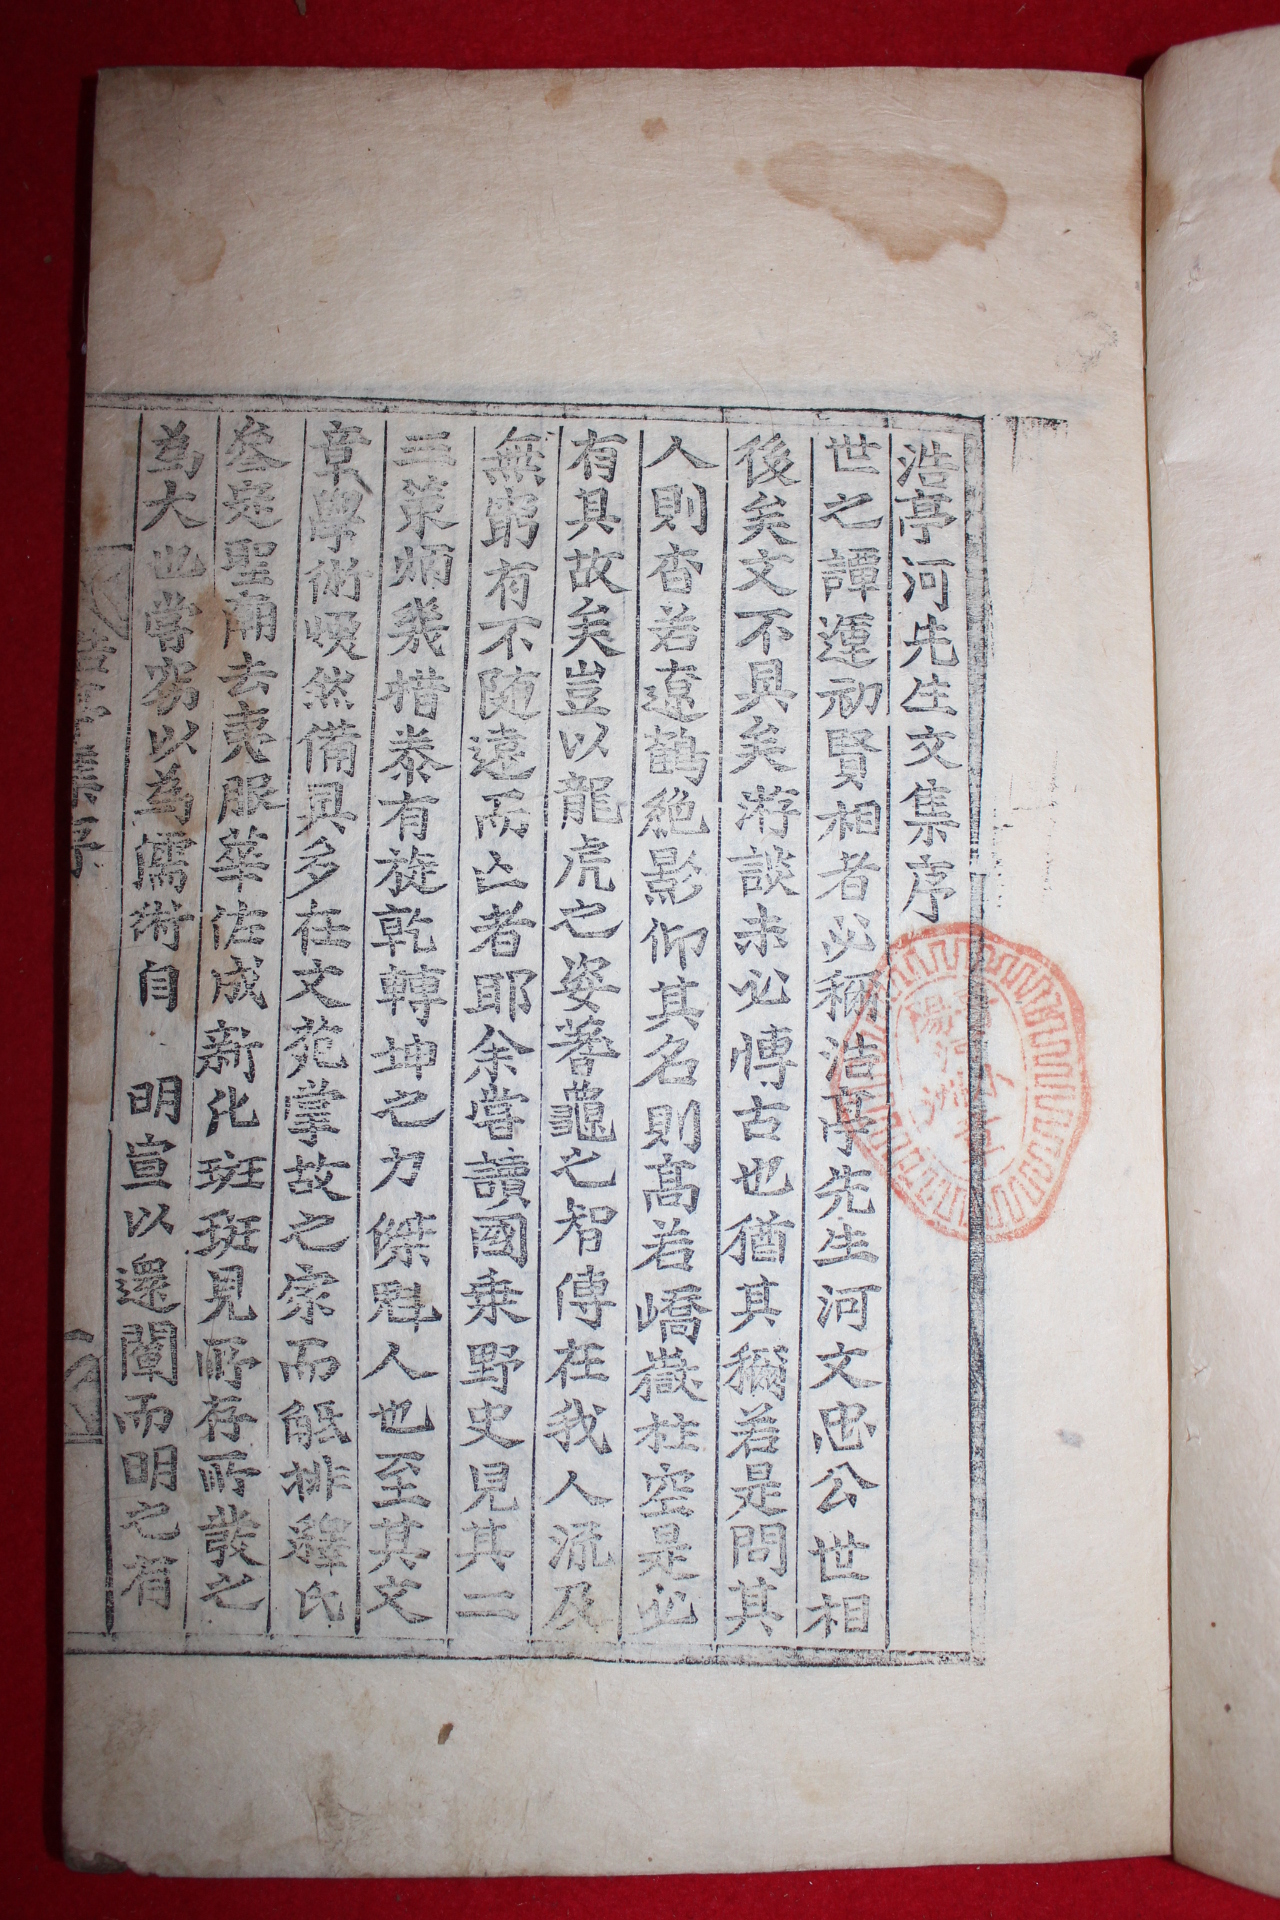 浩亭河先生文集序
世之譚運初賢相者必稱浩亭先生河文忠公世相
後矣文不具矣游談未必博古也猶其稱若是問其
人則杳若遼鶴絶影仰其名則高若嶠嶽柱空是必
有具故矣豈以龍虎之姿蓍龜之智傳在我人流及
無窮有不隨遠而亾者耶余嘗讀國乘野史見其二
三策炳幾措泰有旋乾轉坤之力傑魁人也至其文
章學術煥然備具多在文苑掌故之家而觝排釋氏
叅定聖廟去夷服華佐成新化班班見所存所發之
為大也嘗窃以為儒術自 明宣以還闡而明之有
浩亭集序